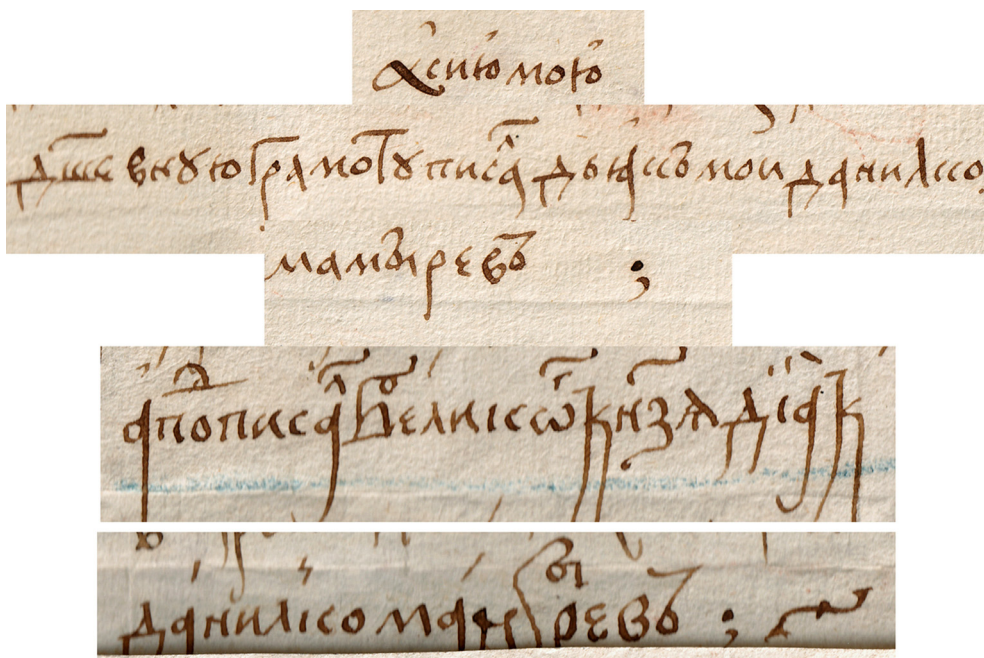 а сию мою
дш҃евнꙋю грамотꙋ писаⷧ дьꙗкъ мои данилко
мамыревъ ;
а поⷣписаⷧ великѡⷢ кн҃зѧ діакъ
данилко мамыревъ ;